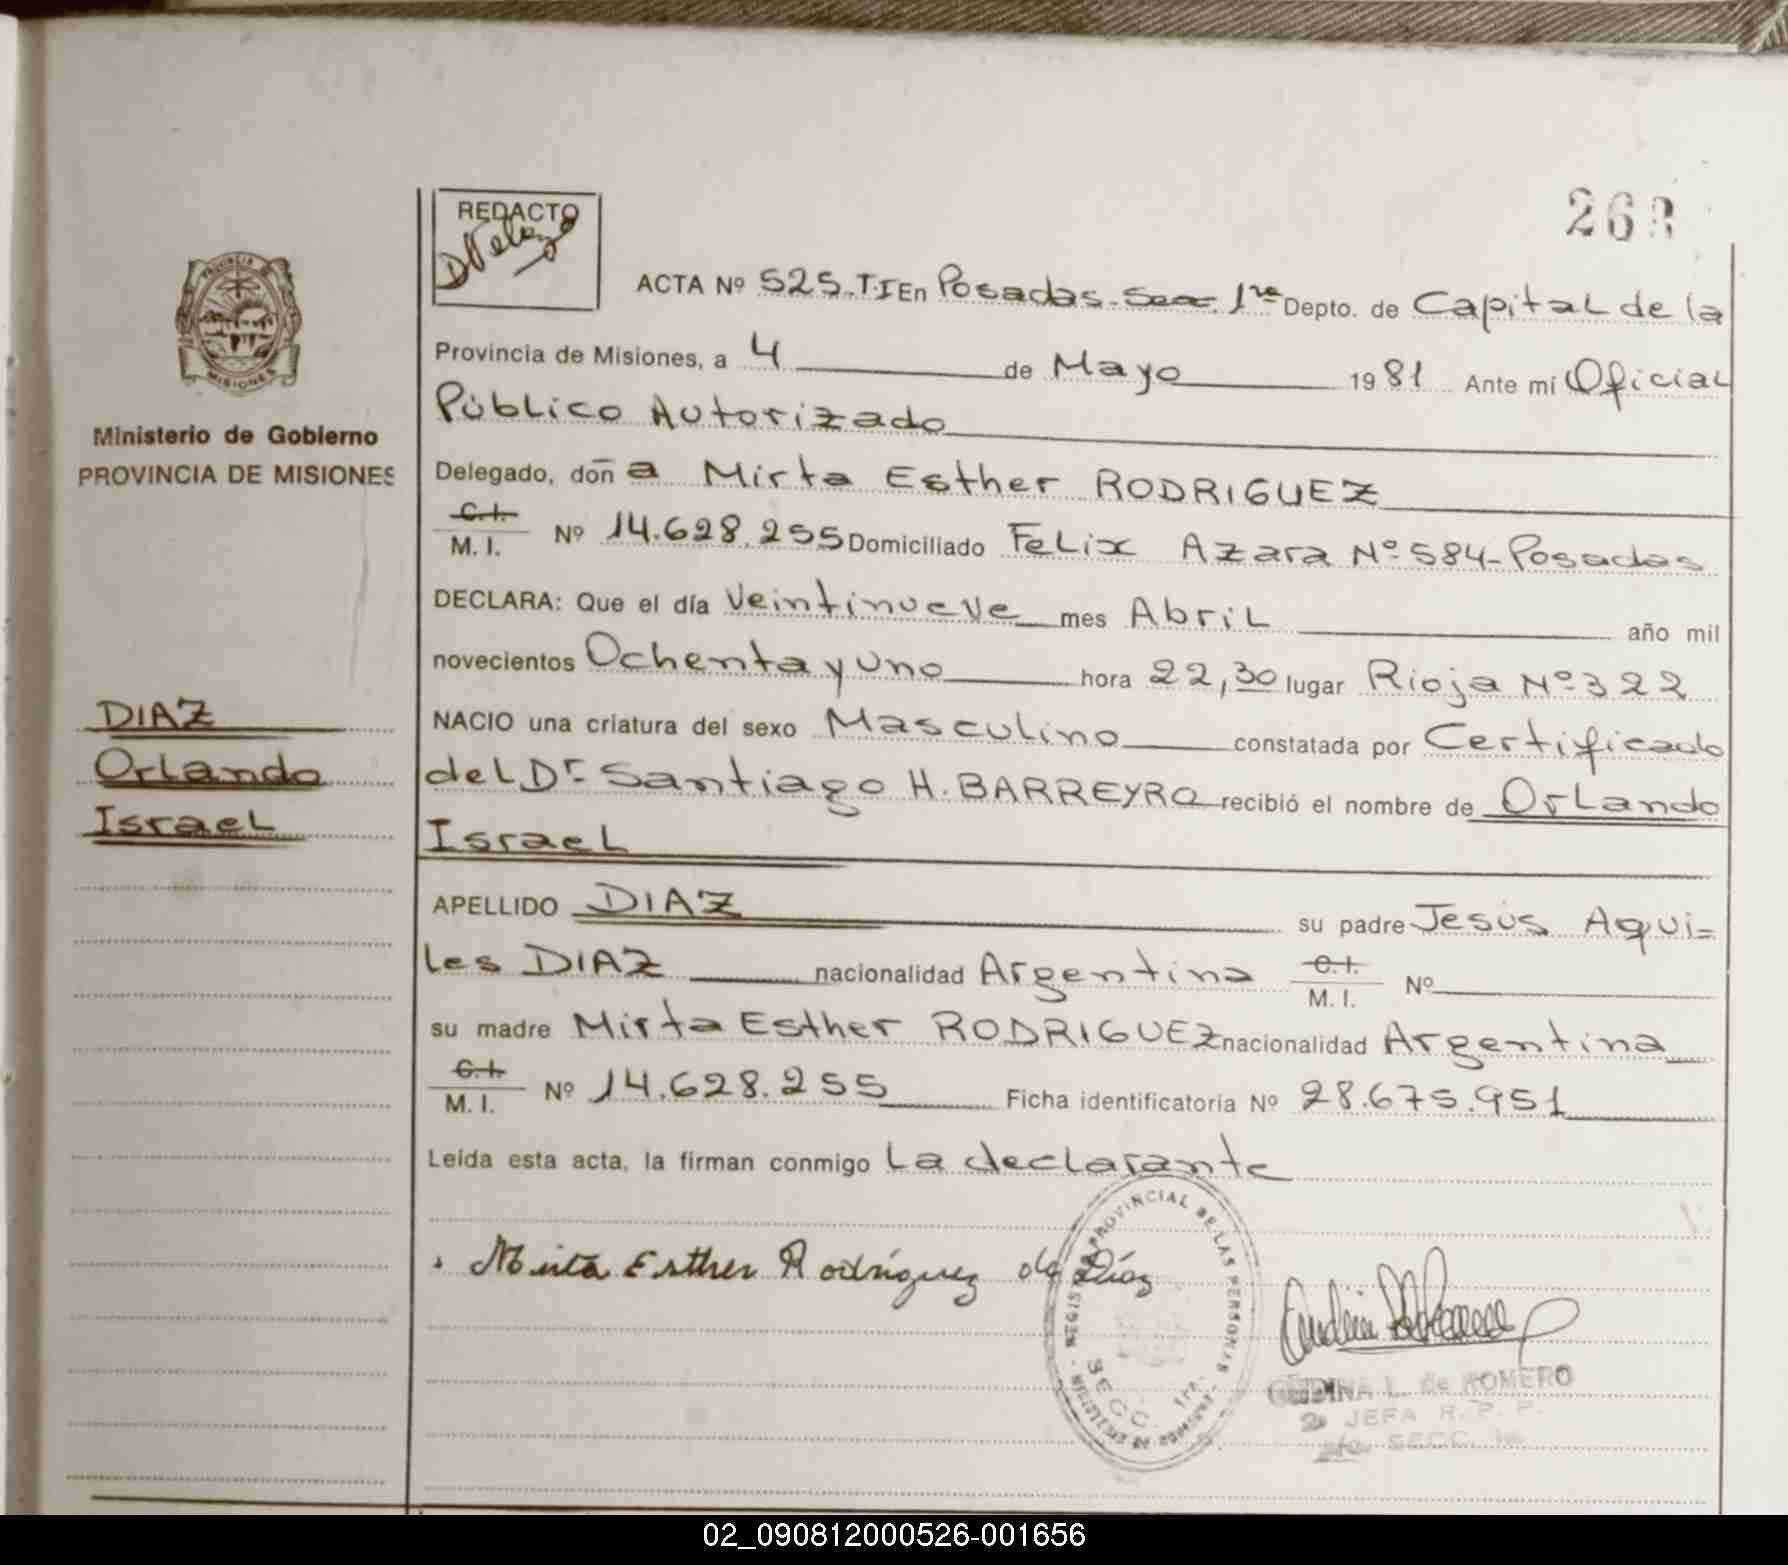 268
REDACTO
ACTA Nº 525.T.I En Posadas-Secc. 1ra Depto. de Capital de la
Provincia de Misiones, a 4 de Mayo 1981 Ante mi Oficial
Público Autorizado
Delegado, doña Mirta Esther RODRIGUEZ
C.I.
M. I. Nº 14.628.255 Domiciliado Felix Azara Nº 584-Posadas
DECLARA: Que el día Veintinueve mes Abril año mil
novecientos Ochenta y Uno hora 22,30 lugar Rioja Nº 322
NACIO una criatura del sexo Masculino constatada por Certificado
del Dr. Santiago H. BARREYRO recibió el nombre de Orlando
Israel
APELLIDO DIAZ su padre Jesús Aqui=
les DIAZ nacionalidad Argentina C.I.
M. I. Nº
su madre Mirta Esther RODRIGUEZ nacionalidad Argentina
C.I.
M. I. Nº 14.628.255 Ficha identificatoria Nº 28.675.951
Leída esta acta, la firman conmigo La declarante
Mirta Esther Rodríguez de Díaz
PROVINCIA DE
MISIONES
Ministerio de Gobierno
PROVINCIA DE MISIONES
DIAZ
Orlando
Israel
REGISTRO PROVINCIAL DE LAS PERSONAS
SECC. 1ra.
L. de ROMERO
JEFA R. P. P.
SECC. 1a
02_090812000526-001656